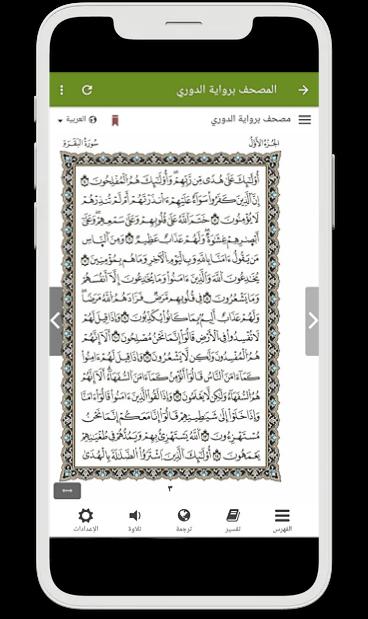 المصحف برواية الدوري
مصحف برواية الدوري
العربية
الجزء الأول
سورة البقرة
أُوْلَٰٓئِكَ عَلَىٰ هُدًى مِّن رَّبِّهِمْ وَأُوْلَٰٓئِكَ هُمُ ٱلْمُفْلِحُونَ
إِنَّ ٱلَّذِينَ كَفَرُواْ سَوَآءٌ عَلَيْهِمْ ءَأَنذَرْتَهُمْ أَمْ لَمْ تُنذِرْهُمْ
لَا يُؤْمِنُونَ خَتَمَ ٱللَّهُ عَلَىٰ قُلُوبِهِمْ وَعَلَىٰ سَمْعِهِمْ وَعَلَىٰ
أَبْصَٰرِهِمْ غِشَٰوَةٌ وَلَهُمْ عَذَابٌ عَظِيمٌ وَمِنَ ٱلنَّاسِ
مَن يَقُولُ ءَامَنَّا بِٱللَّهِ وَبِٱلْيَوْمِ ٱلْأَخِرِ وَمَا هُم بِمُؤْمِنِينَ
يُخَٰدِعُونَ ٱللَّهَ وَٱلَّذِينَ ءَامَنُواْ وَمَا يُخَٰدِعُونَ إِلَّآ أَنفُسَهُمْ
وَمَا يَشْعُرُونَ فِي قُلُوبِهِم مَّرَضٌ فَزَادَهُمُ ٱللَّهُ مَرَضًا
وَلَهُمْ عَذَابٌ أَلِيمٌ بِمَا كَانُواْ يُكَذِّبُونَ وَإِذَا قِيلَ لَهُمْ
لَا تُفْسِدُواْ فِي ٱلْأَرْضِ قَالُوٓاْ إِنَّمَا نَحْنُ مُصْلِحُونَ أَلَآ إِنَّهُمْ
هُمُ ٱلْمُفْسِدُونَ وَلَٰكِن لَّا يَشْعُرُونَ وَإِذَا قِيلَ لَهُمْ ءَامِنُواْ
كَمَآ ءَامَنَ ٱلنَّاسُ قَالُوٓاْ أَنُؤْمِنُ كَمَآ ءَامَنَ ٱلسُّفَهَآءُ أَلَآ إِنَّهُمْ
هُمُ ٱلسُّفَهَآءُ وَلَٰكِن لَّا يَعْلَمُونَ وَإِذَا لَقُواْ ٱلَّذِينَ ءَامَنُواْ قَالُوٓاْ ءَامَنَّا
وَإِذَا خَلَوْاْ إِلَىٰ شَيَٰطِينِهِمْ قَالُوٓاْ إِنَّا مَعَكُمْ إِنَّمَا نَحْنُ
مُسْتَهْزِءُونَ ٱللَّهُ يَسْتَهْزِئُ بِهِمْ وَيَمُدُّهُمْ فِي طُغْيَٰنِهِمْ
يَعْمَهُونَ أُوْلَٰٓئِكَ ٱلَّذِينَ ٱشْتَرَوُاْ ٱلضَّلَٰلَةَ بِٱلْهُدَىٰ
٣
الفهرس
تفسير
ترجمة
تلاوة
الإعدادات